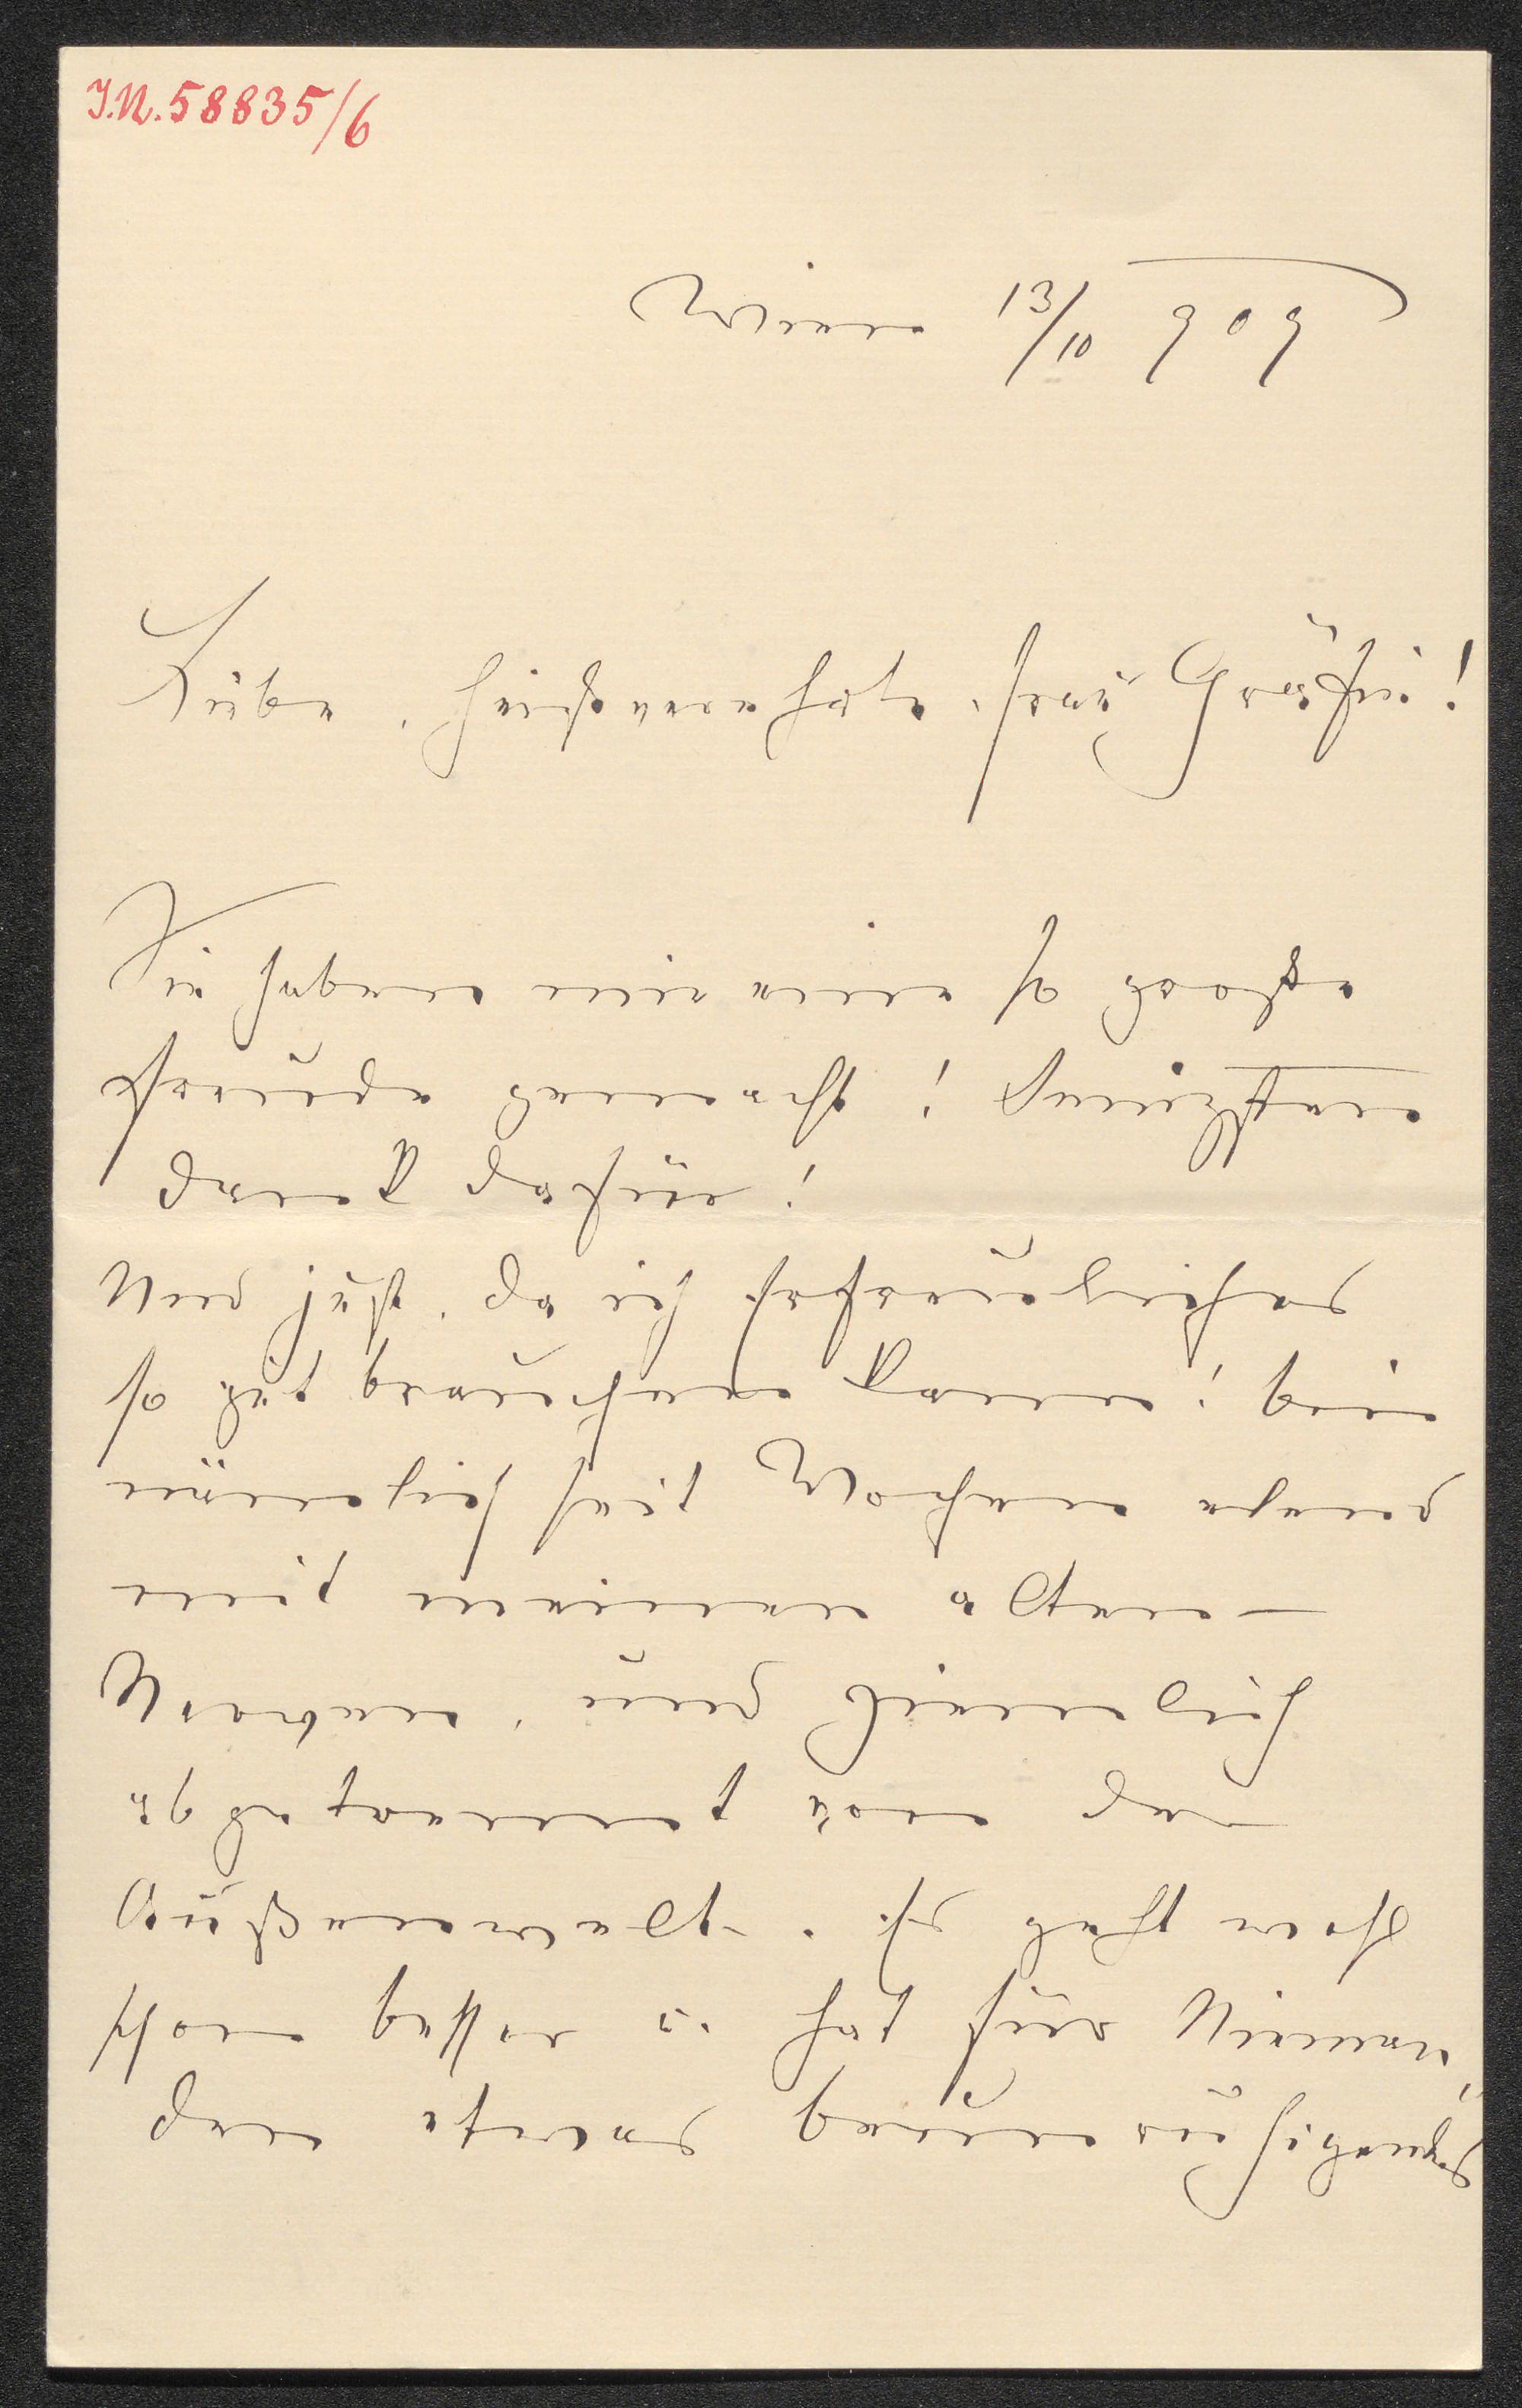 I.N. 58835/6
Wien 13/10 909
Liebe, hochverehrte Frau Gräfin!
Sie haben mir eine so große
Freude gemacht! Innigsten
Dank dafür!
Und just, da ich Erfreuliches
so gut brauchen kann! bin
nämlich seit Wochen elend
mit meinen alten
Nerven, und ziemlich
abgetrennt von der
Außenwelt. Es geht jetzt
schon besser u. hat für Niemand
etwas Beunruhigendes